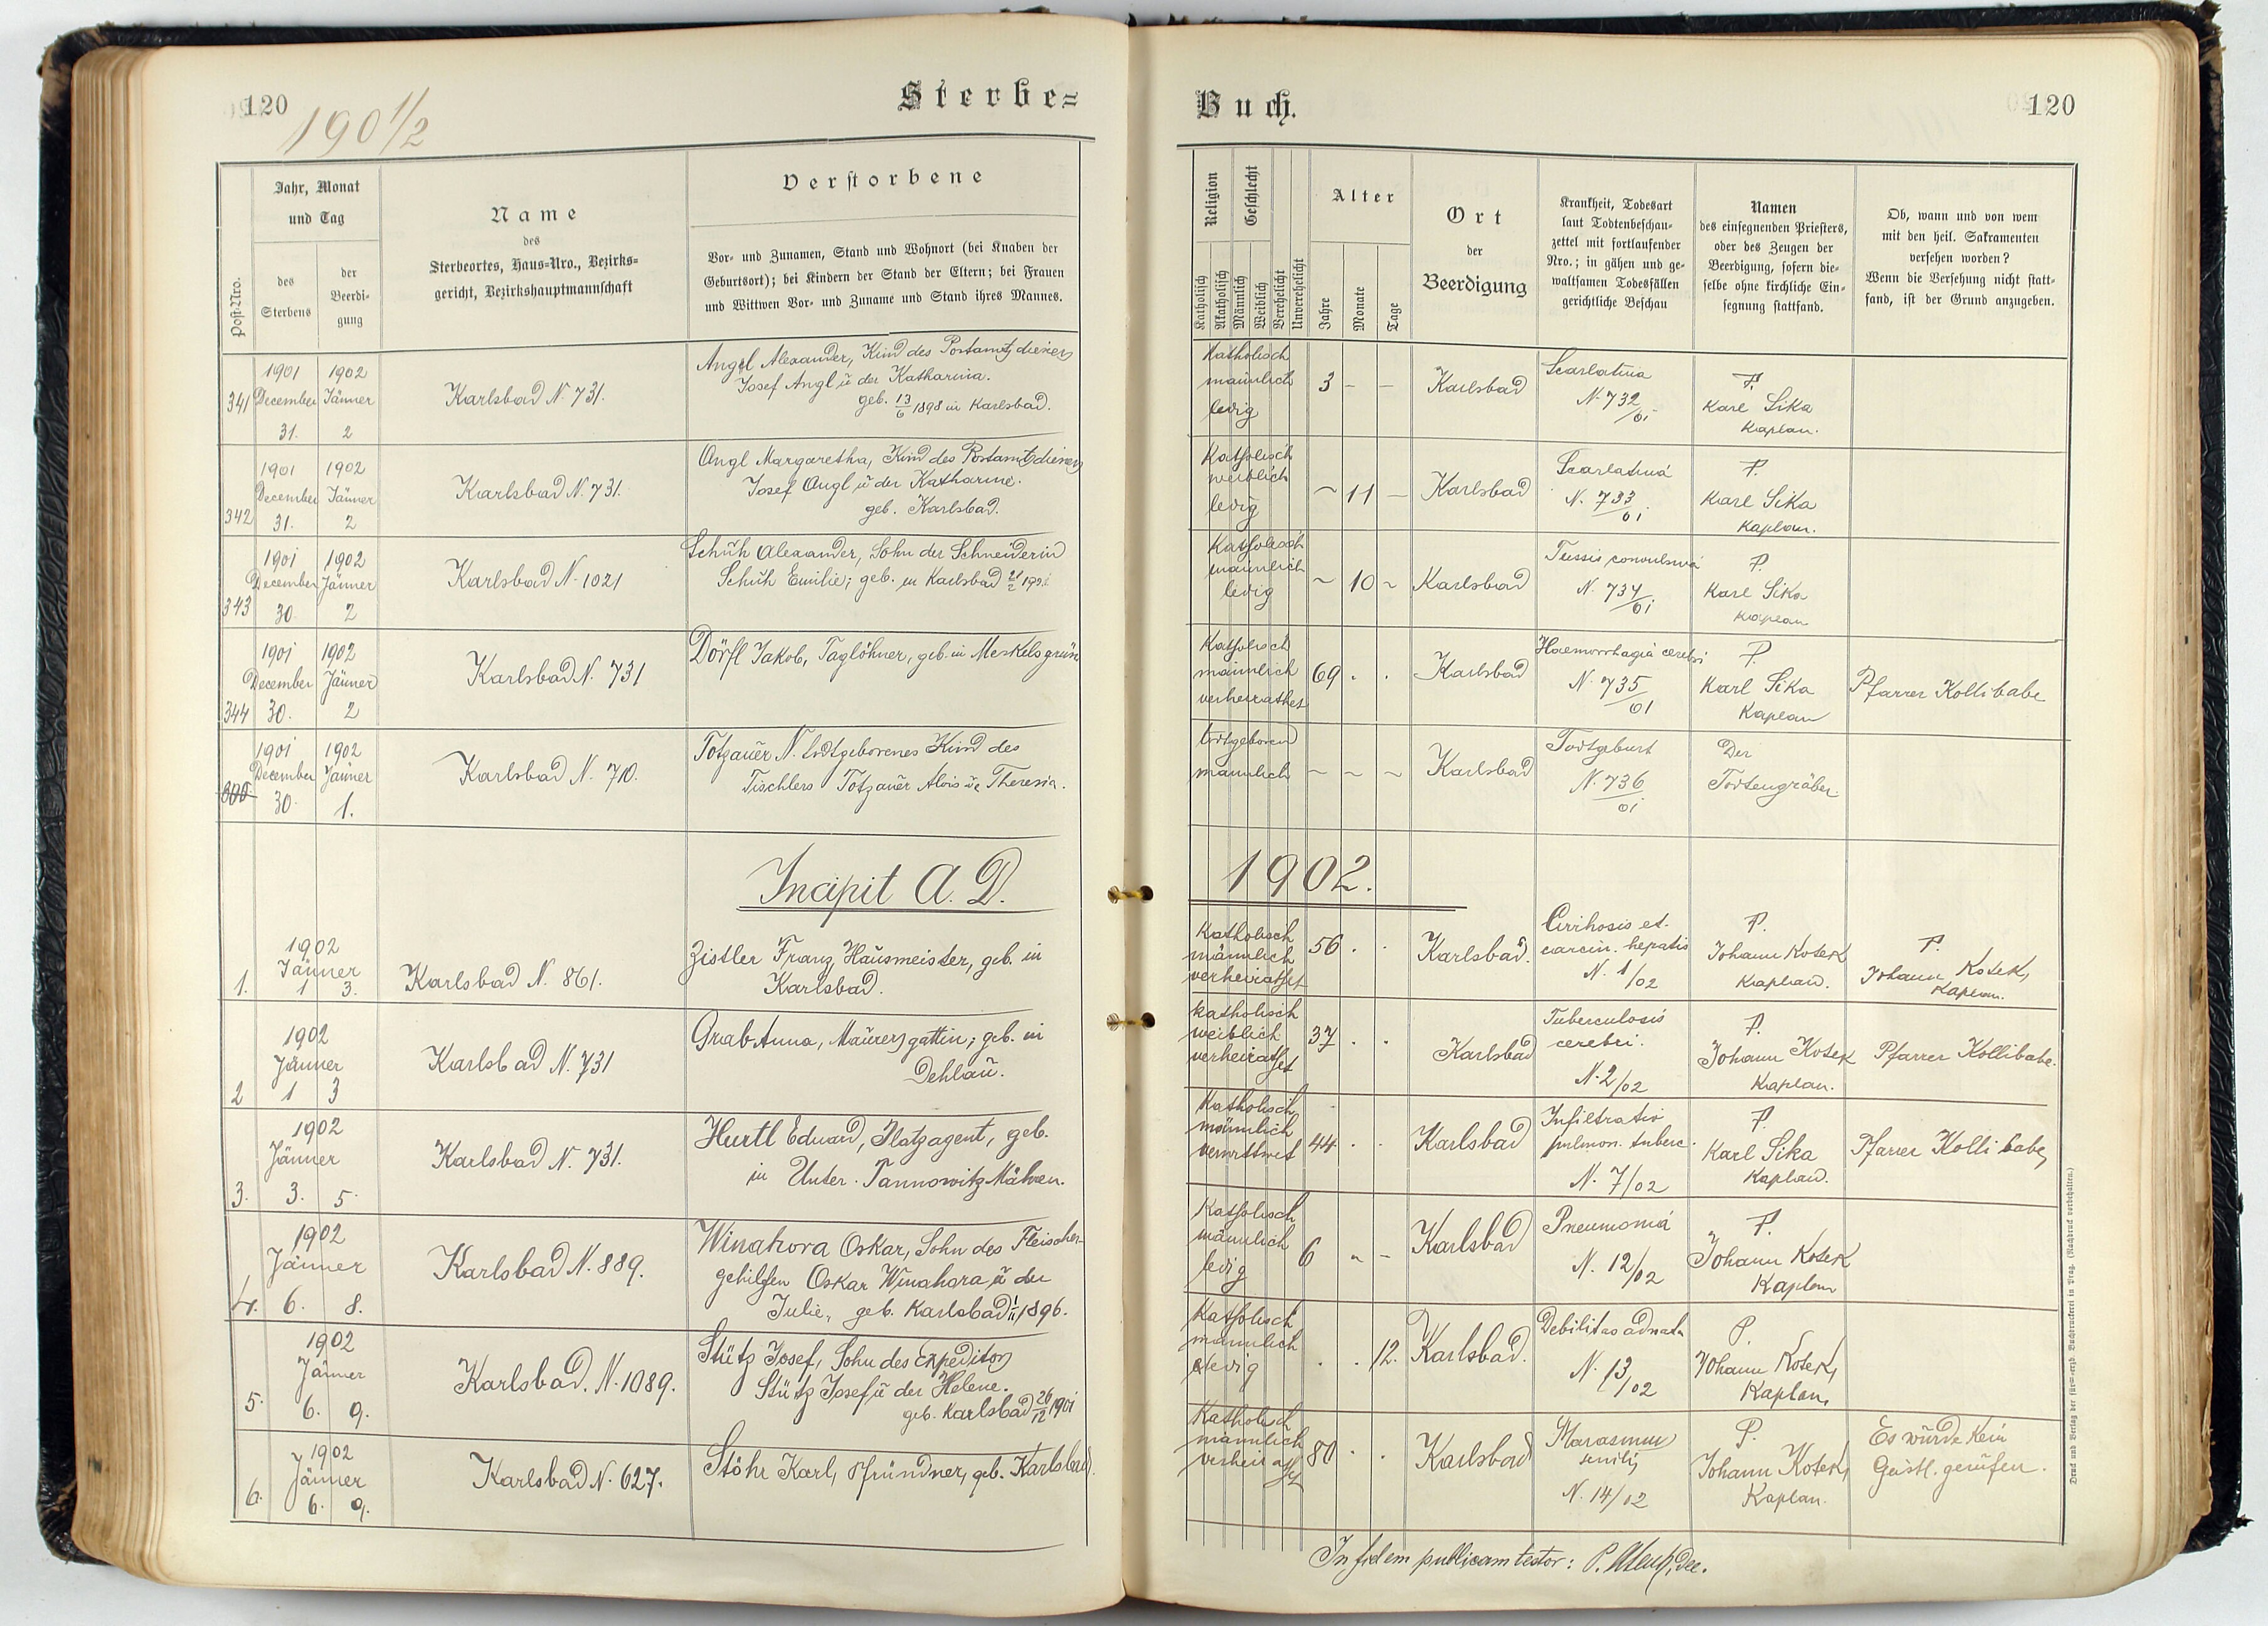 120
1901/2
Sterbe=
Post-Nro.
Jahr, Monat
und Tag
des
Sterbens
der
Beerdi-
gung
Name
des
Sterbeortes, Haus-Nro., Bezirks-
gericht, Bezirkshauptmannschaft
Verstorbene
Vor- und Zunamen, Stand und Wohnort (bei Knaben der
Geburtsort); bei Kindern der Stand der Eltern; bei Frauen
und Wittwen Vor- und Zuname und Stand ihres Mannes.
341
1901 1902
December Jänner
31. 2
Karlsbad N. 731.
Angel Alexander, Kind des Postamtsdieners
Josef Angl u der Katharina.
geb. 13/6 1898 in Karlsbad.
342
1901 1902
December Jänner
31. 2
Karlsbad N. 731.
Angl Margaretha, Kind des Postamtsdieners
Josef Angl, u der Katharine.
geb. Karlsbad.
343
1901 1902
December Jänner
30. 2
Karlsbad N. 1021
Schuh Alexander, Sohn der Schneiderin
Schuh Emilie; geb. in Karlsbad
344
1901 1902
December Jänner
30. 2
Karlsbad N. 731
Dörfl Jakob, Taglöhner, geb. in Meskelsgrün
1901 1902
December Jänner
30. 1.
Karlsbad N. 710.
Totzauer N. todtgeborenes Kind des
Tischlers Totzauer Alois u. Theresia.
Incipit A. D.
1.
1902
Jänner
1 3.
Karlsbad N. 861.
Zistler Franz, Hausmeister, geb. in
Karlsbad.
2
1902
Jänner
1 3
Karlsbad N. 731
Grab Anna, Maurersgattin; geb. in
Dehlau.
3.
1902
Jänner
3. 5.
Karlsbad N. 731.
Hurtl Eduard, Platzagent, geb.
in Unter-Tannowitz Mähren.
4.
1902
Jänner
6. 8.
Karlsbad N. 889.
Winahora Oskar, Sohn des Fleischer-
gehilfen Oskar Winahora u der
Julie, geb. Karlsbad 1/11 1896.
5.
1902
Jänner
6. 9.
Karlsbad. N. 1089.
Stütz Josef, Sohn des Expeditors
Stütz Josef u der Helene.
geb. Karlsbad 26/12 1901
6.
1902
Jänner
6. 9.
Karlsbad N. 627.
Stöhr Karl, Pfründner, geb. Karlsbad.
Buch.
120
Religion
Geschlecht
Katholisch
Akatholisch
Männlich
Weiblich
Verehelicht
Unverehelicht
Alter
Jahre
Monate
Tage
Ort
der
Beerdigung
Krankheit, Todesart
laut Todtenbeschau-
zettel mit fortlaufender
Nro.; in gähen und ge-
waltsamen Todesfällen
gerichtliche Beschau
Namen
des einsegnenden Priesters,
oder des Zeugen der
Beerdigung, sofern die-
selbe ohne kirchliche Ein-
segnung stattfand.
Ob, wann und von wem
mit den heil. Sakramenten
versehen worden?
Wenn die Versehung nicht statt-
fand, ist der Grund anzugeben.
Katholisch
männlich
ledig
3 - -
Karlsbad
Scarlatina
N. 732/01
P.
Karl Sika
Kaplan.
Katholisch
weiblich
ledig
~ 11 -
Karlsbad
Scarlatina
N. 733/01
P.
Karl Sika
Kaplan.
Katholisch
männlich
ledig
~ 10 ~
Karlsbad
Tussis convulsiva
N. 734/01
P.
Karl Sika
Kaplan
Katholisch
männlich
verheirathet
69 . .
Karlsbad
Haemorrhagia cerebri
N. 735/01
P.
Karl Sika
Kaplan
Pfarrer Kollibabe
todtgeboren
männlich
~ ~ ~
Karlsbad
Todtgeburt
N. 736/01
Der
Todtengräber.
1902.
Katholisch
männlich
verheirathet
56 . .
Karlsbad.
Cirrhosis et.
carcin. hepatis
N. 1/02
P.
Johann Kotek
Kaplan.
P.
Johann Kotek,
Kaplan.
Katholisch
weiblich
verheirathet
37 . .
Karlsbad
Tuberculosis
cerebri.
N. 2/02
P.
Johann Kotek
Kaplan.
Pfarrer Kollibabe.
Katholisch
männlich
verwittwet
44 . .
Karlsbad
Infiltratio
pulmon. tuberc.
N. 7/02
P.
Karl Sika
Kaplan.
Pfarrer Kollibabe,
Katholisch
männlich
ledig
6 - -
Karlsbad
Pneumonia
N. 12/02
P.
Johann Kotek
Kaplan
Katholisch
männlich
ledig
. . 12.
Karlsbad.
Debilitas adnata
N. 13/02
P.
Johann Kotek,
Kaplan,
Katholisch
männlich
verheirathet
80 . .
Karlsbad
Marasmus
senilis
N. 14/02
P.
Johann Kotek,
Kaplan.
Es wurde kein
Geistl. gerufen.
In fidem publicam testor: P.
Druck und Verlag der fürst-erzb. Buchdruckerei in Prag. (Nachdruck vorbehalten.)